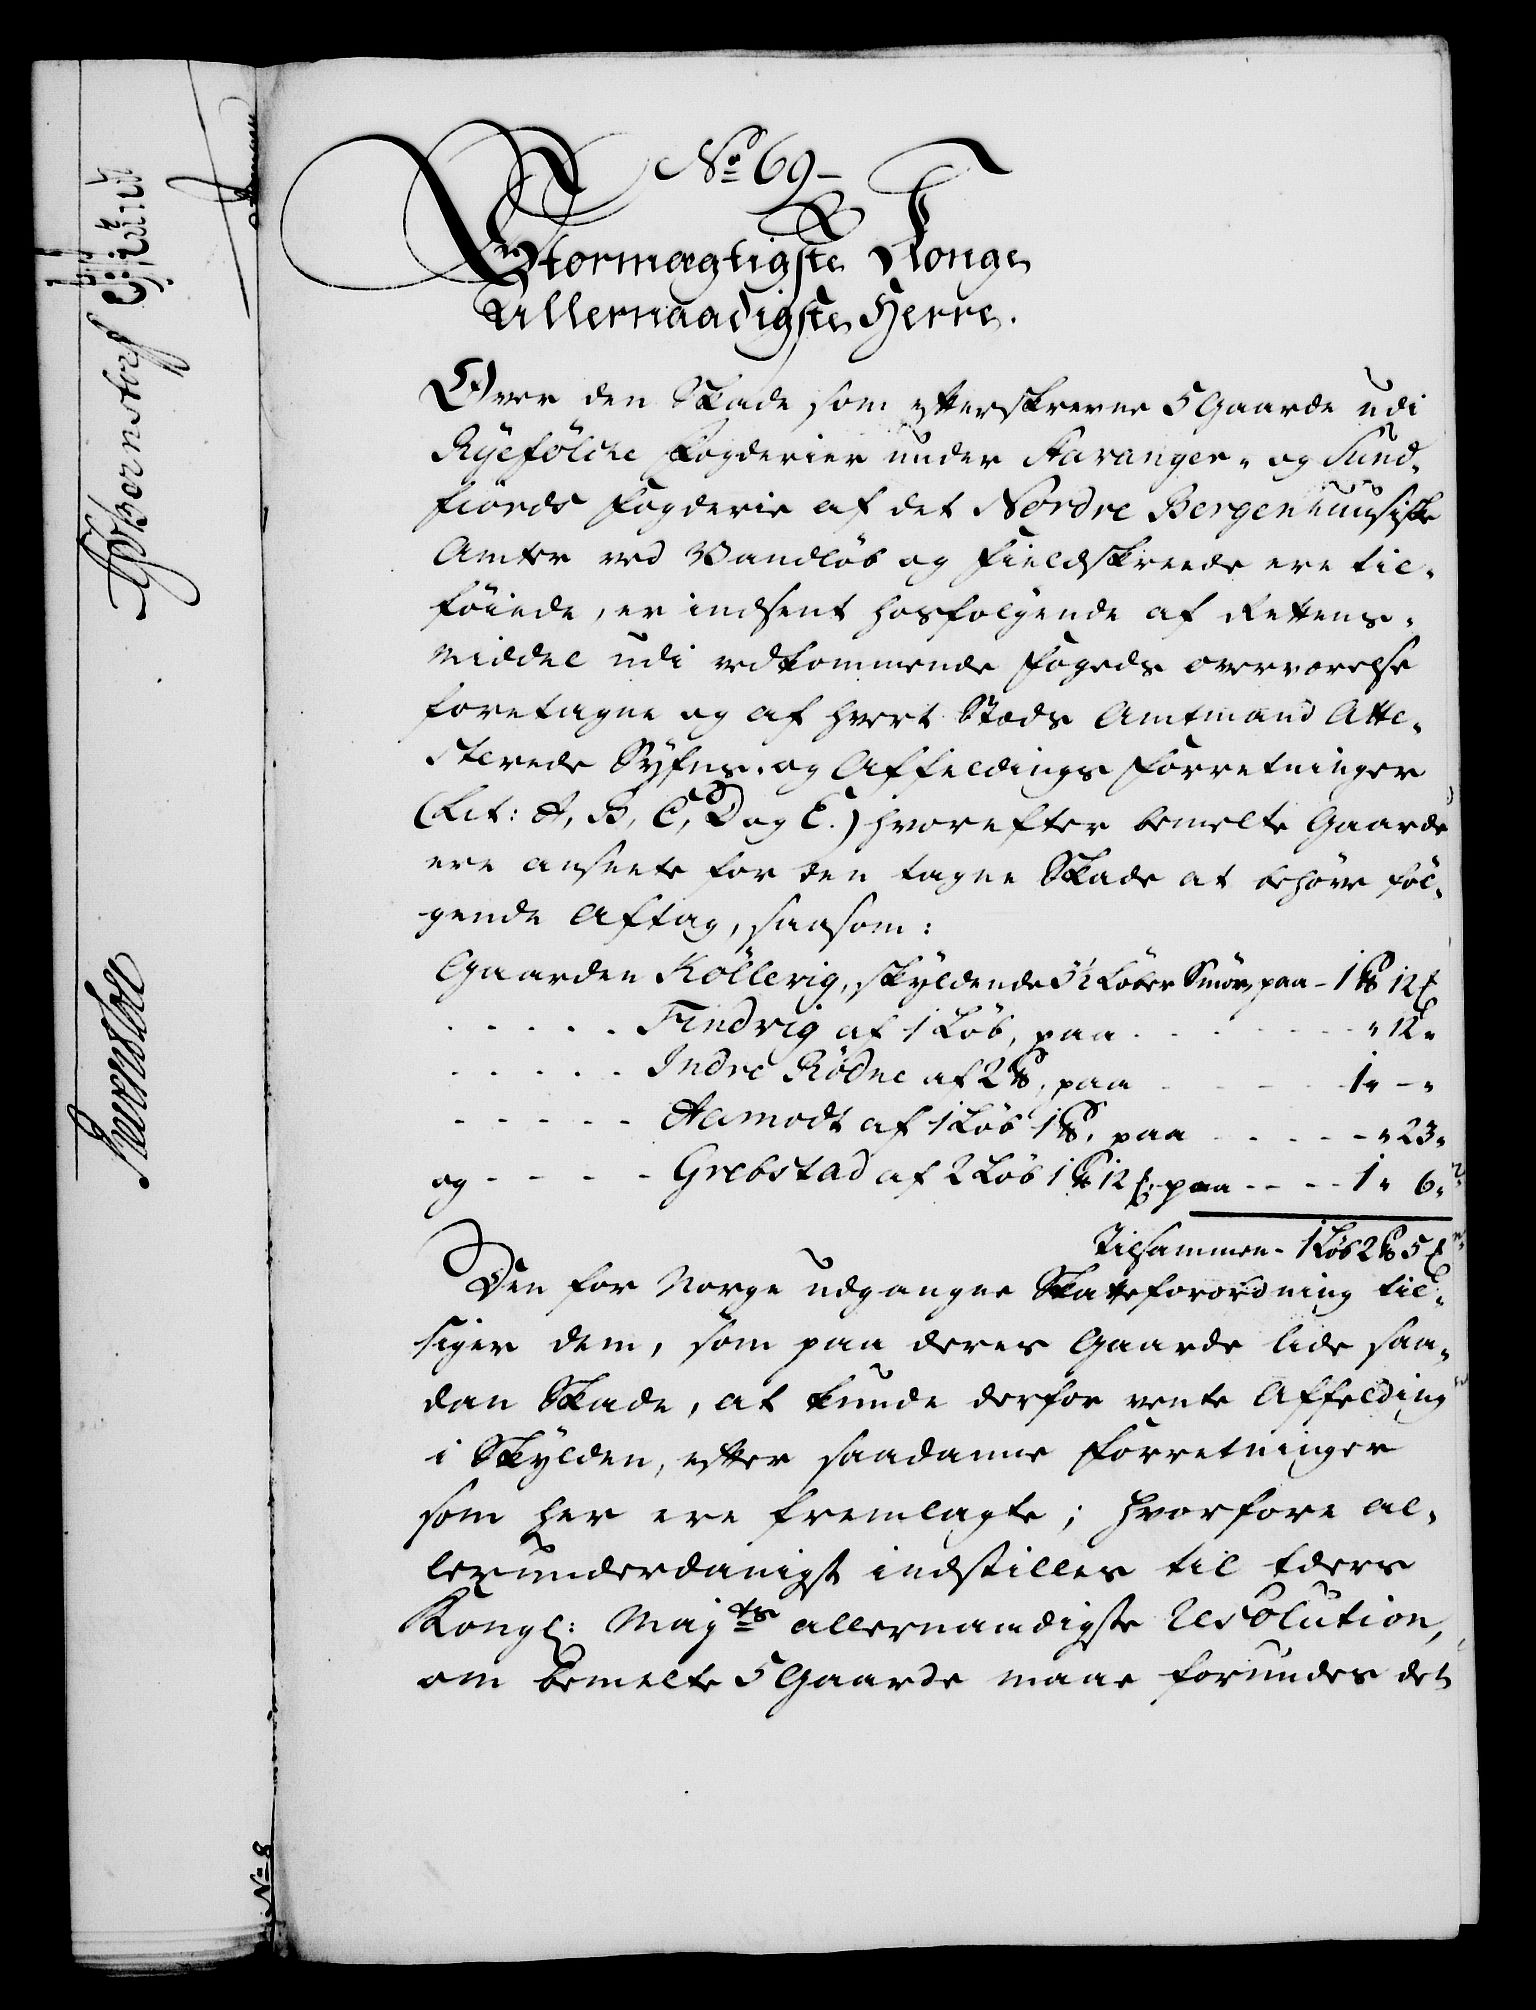 No 69-
Stormægtigste Konge
Allernaadigste Herre.
Over den Skade som efterskrevne 5 Gaarde udi
Ryefölche Fogderier under Stavanger- og Sund-
fiords Fogderie af det Nordre Bergenhuusiske
Amter ved Vandløb og Fieldskreede ere til-
föiede, er indsent hosfølgende af Rettens-
Middel udi vedkommende Fogeds overværelse
foretagne og af hvert Stæds Amtmand Atte-
sterede Syfns- og Affældings Forretninger
(Lit: A, B, C, D og E.) hvorefter bemelte Gaarde
ere anseete for den tagne Skade at behøve föl-
gende Aftag, saasom:
Gaarden Köllevig, skyldende 5½ Løber Smör, paa - 1 12
- - - - - Findvig af 1 Løb, paa - - - - " 12 "
- - - - - Indre Rödne af 2, paa - - - - 1 " - "
- - - - - Aamodt af 1 Løb 1, paa - - - - " 23 "
og - - - - Grebstad af 2 Løb 1 12, paa - - - - 1 " 6 "
Tilsammen - 1 Løb 2 5
Den for Norge udgangne Skatteforordning til-
siger dem, som paa deres Gaarde lide saa-
dan Skade, at kunde derfor vente Affælding
i Skylden, efter saadanne Forretninger
som her ere fremlagte; hvorfore al-
lerunderdanigst indstilles til Eders
Kongl: Majts allernaadigste Resolution,
om bemelte 5 Gaarde maae forundes det
No 8